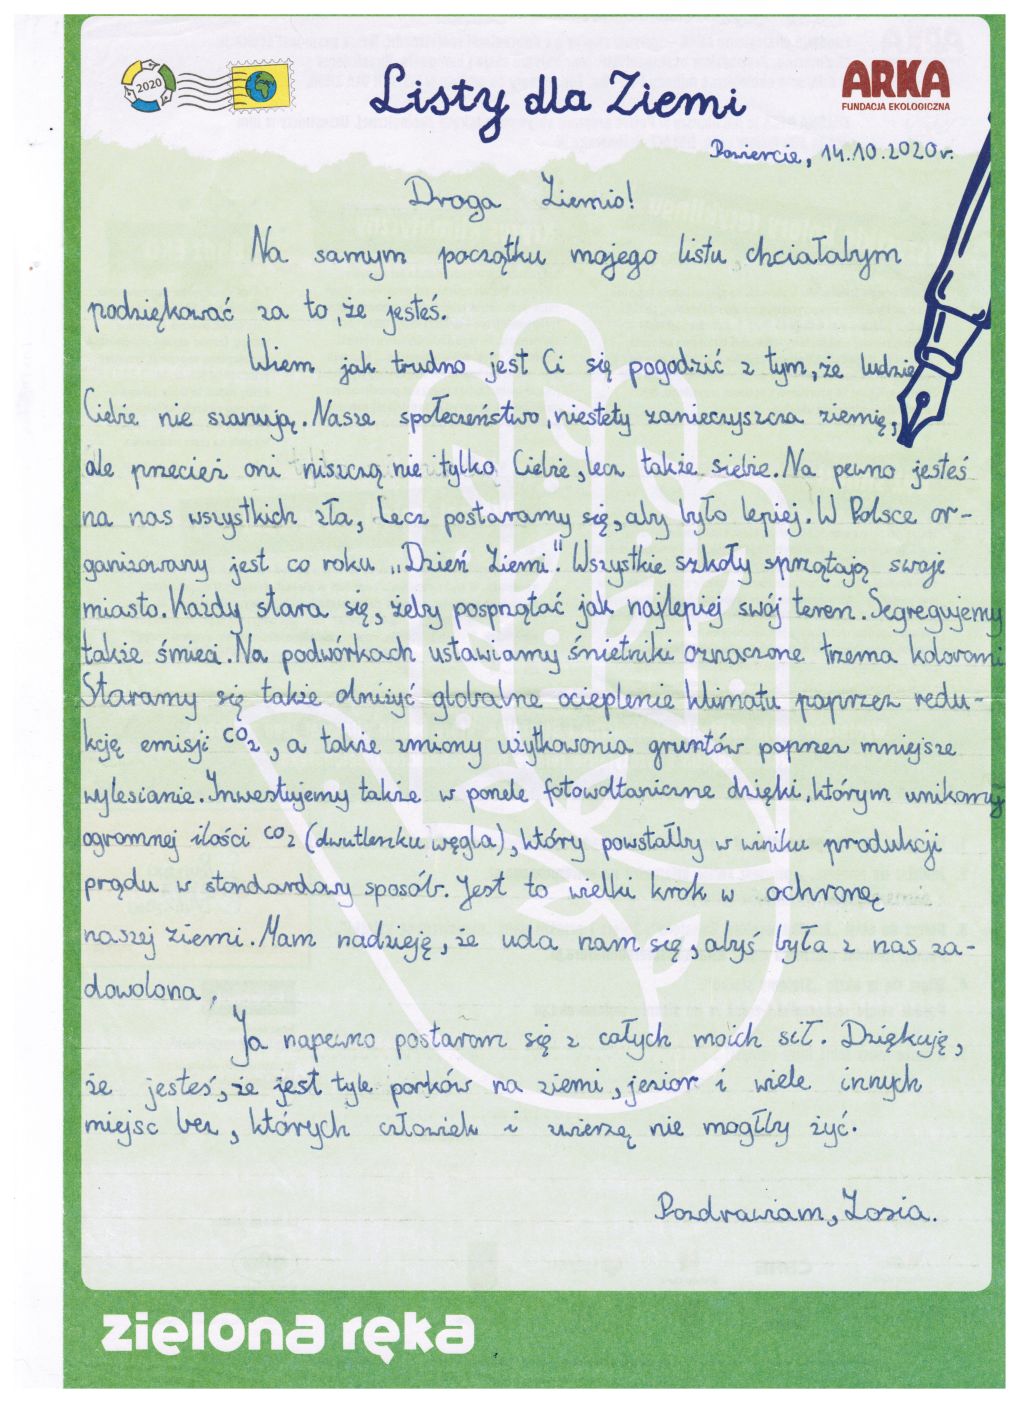 2020
Listy dla Ziemi
ARKA
FUNDACJA EKOLOGICZNA
Powiercie, 14.10.2020r.
Droga Ziemio!
Na samym początku mojego listu chciałabym
podziękować za to, że jesteś.
Wiem jak trudno jest Ci się pogodzić z tym, że ludzie
Ciebie nie szanują. Nasze społeczeństwo, niestety zanieczyszcza ziemię,
ale przecież oni niszczą nie tylko Ciebie, lecz także siebie. Na pewno jesteś
na nas wszystkich zła, Lecz postaramy się, aby było lepiej. W Polsce or-
ganizowany jest co roku „Dzień Ziemi". Wszystkie szkoły sprzątają swoje
miasto. Każdy stara się, żeby posprzątać jak najlepiej swój teren. Segregujemy
także śmieci. Na podwórkach ustawiamy śmietniki oznaczone trzema kolorami
Staramy się także obniżyć globalne ocieplenie klimatu poprzez redu-
kcję emisji CO2, a także zmiony użytkowania gruntów poprzez mniejsze
wylesianie. Inwestujemy także w panele fotowoltaniczne dzięki, którym unikamy
ogromnej ilości CO2 (dwutlenku węgla), który powstałby w winiku produkcji
prądu w standardowy sposób. Jest to wielki krok w ochronę
naszej ziemi. Mam nadzieję, że uda nam się, abyś była z nas za-
dowolona.
Ja napewno postaram się z całych moich sił. Dziękuję,
że jesteś, że jest tyle parków na ziemi, jezior i wiele innych
miejsc bez, których człowiek i zwierzę nie mogłby żyć.
Pozdrawiam, Zosia.
zielona ręka